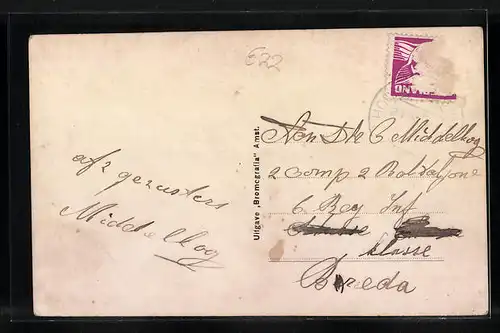 E22
afz gezusters
Middelkoop
Uitgave „Bromografia" Amst.
Aan Dk C Middelkoop
2 Comp 2 Bataljone
6 Reg Inf
klasse
Breda